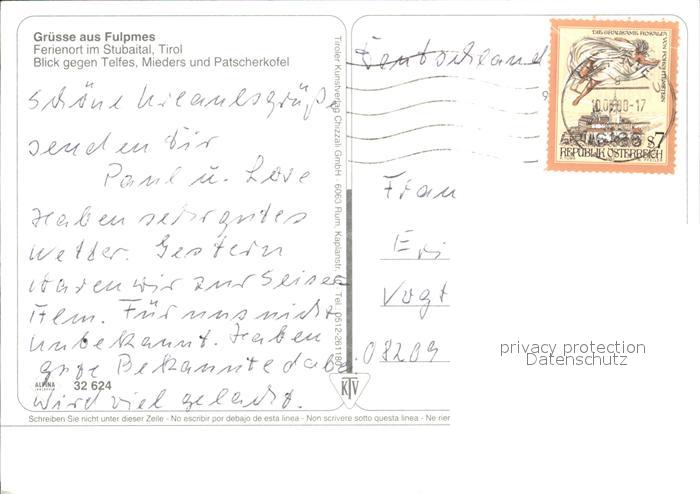 Grüsse aus Fulpmes
Ferienort im Stubaital, Tirol
Blick gegen Telfes, Mieders und Patscherkofel
Schöne Urlaubsgrüße
senden Dir
Paul u. Love
Haben sehr gutes
Wetter. Gestern
waren wir zur Seiser
Alm. Für uns nicht
unbekannt. Haben
gute Bekannte dabei
wird viel gelacht.
ALPINA
32 624
Schreiben Sie nicht unter dieser Zeile - No escribir por debajo de esta linea - Non scrivere sotto questa linea - Ne
Tiroler Kunstverlag Chizzali GmbH · 6063 Rum, Kaplanstr. Tel. 0512-26118
KTV
Deutschland
DIE GRAUSAME ROSALIA VON FORCHTENSTEIN
REPUBLIK ÖSTERREICH
S7
Frau
Vogt
08209
privacy protection
Datenschutz